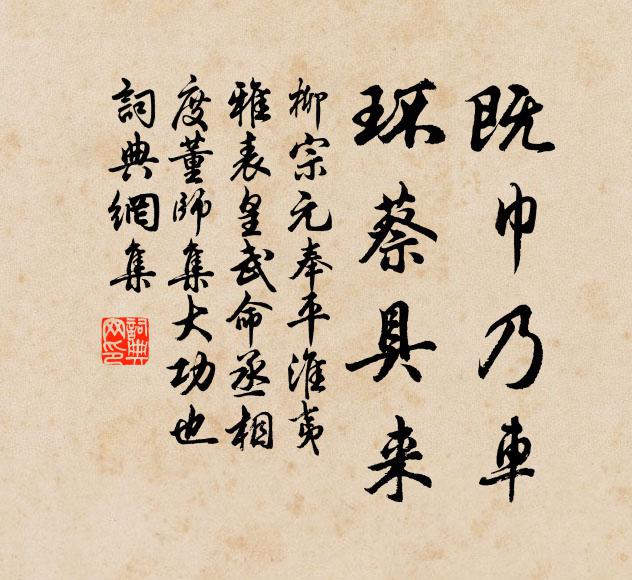 既巾乃車
环蔡具来
柳宗元奉平淮夷
雅表皇武命丞相
度董師集大功也
詞典網集
詞典
网印